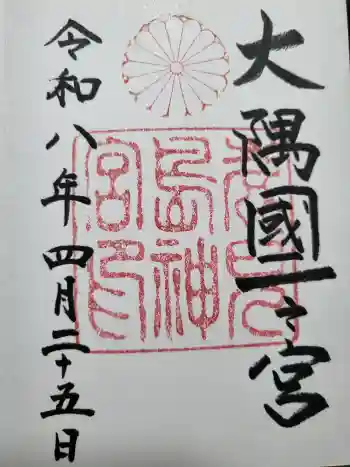 大隅國一之宮
鹿兒
島神
宮印
令和八年四月二十五日